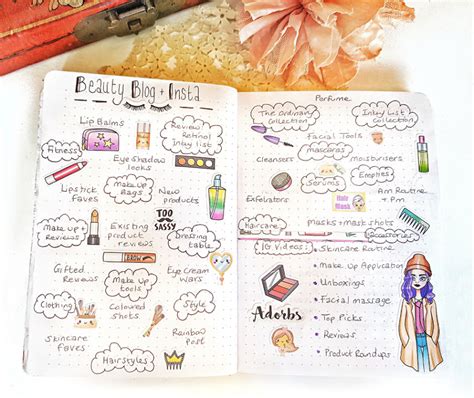 Beauty Blog + Insta
Lip Balms
Review
Retinol
Inky List
Fitness
Eye Shadow
looks
Lipstick
Faves
Make up
Bags
New
products
TOO
SASSY
Make up
Reviews
Existing
product
reviews
Dressing
table
BROW
Gifted
Reviews
Make up
tools
Eye Cream
wars
Clothing
Coloured
shots
Style
Skincare
Faves
Rainbow
Post
Hairstyles
Perfume
The Ordinary
Collection
Inky List
Collection
Facial Tools
Mascaras
Cleansers
Moisturisers
Serums
Empties
Exfoliators
Hair
Mask
Am Routine
+ Pm
Haircare
masks + mask shots
Accessories
IG Videos:
Skincare Routine
Make Up Application
Unboxings
Facial massage
Adorbs
Top Picks
Reviews
Product Roundups